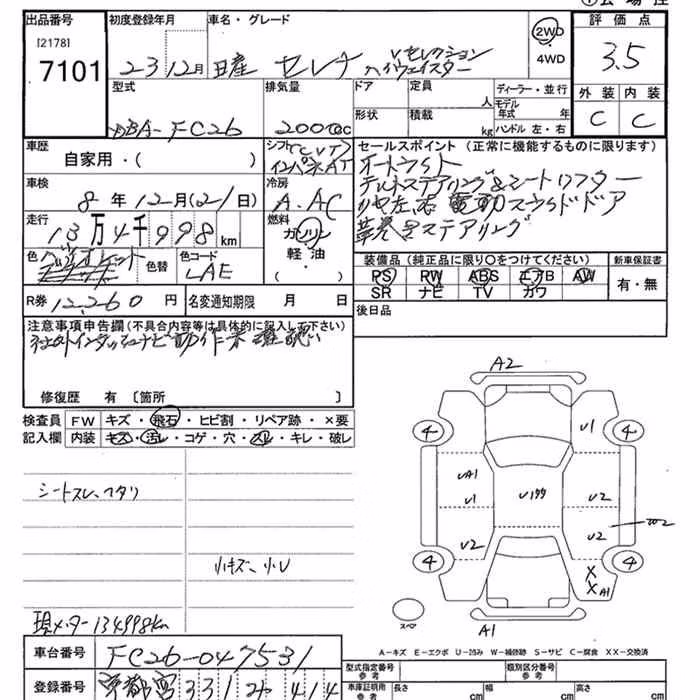 出品番号
[2178]
7101
初度登録年月
23 12月
車名・グレード
日産 セレナ Vセレクション
ハイウェイスター
2WD
・
4WD
評価点
3.5
外装 内装
C C
型式
DBA-FC26
排気量
2000cc
ドア
定員
人
形状
積載
kg
ディーラー・並行
モデル
年式 年
ハンドル 左・右
車歴
自家用・( )
シフト(CVT)
インパネAT
セールスポイント (正常に機能するものに限ります)
オートライト
革巻きステアリング
車検
8年12月(21日)
冷房
A.AC
走行
13万4千998km
燃料
ガソリン
軽油
( )
色
色替
色コード
LAE
R券 12,260円
名変通知期限 月 日
装備品 (純正品に限り○をつけてください)
PS RW ABS エアB AW
SR ナビ TV カワ
新車保証書
有・無
後日品
注意事項申告欄(不具合内容等は具体的に記入して下さい)
社外インダッシュナビ動作未確認
修復歴 有〔箇所 〕
検査員
記入欄
FW キズ・飛石・ヒビ割・リペア跡・×要
内装 キズ・汚レ・コゲ・穴・スレ・キレ・破レ
シートスレ、ヘタリ
小キズ、小U
現メーター134998km
A2
4
4
U1
UA1
U1
U2
U2
U2
4
4
X
X A1
スペア
A1
A-キズ E-エクボ U-凹み W-補修跡 S-サビ C-腐食 XX-交換済
車台番号 FC26-047531
登録番号 宇都宮 331 414
型式指定番号
参考
類別区分番号
参考
車庫証明用
参考
長さ
cm
幅
cm
高さ
cm